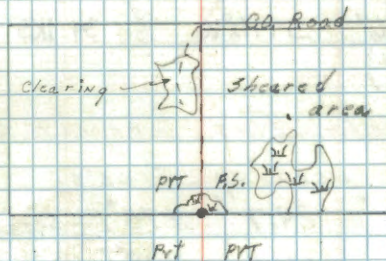 Co. Road
Clearing
Sheared
area
PVT F.S.
Pvt PVT